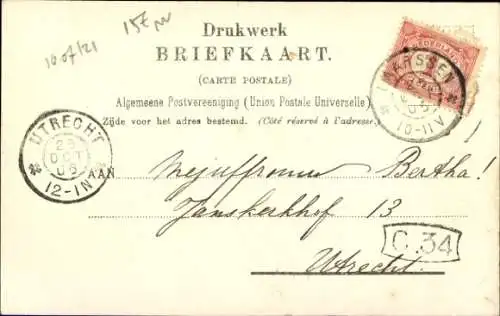 15t
10 of/21
Drukwerk
BRIEFKAART.
(CARTE POSTALE)
Algemeene Postvereeniging (Union Postale Universelle)
Zijde voor het adres bestemd. (Côté réservé à l'adresse.)
NEDERLAND
MAARSSEN
10-11V
UTRECHT
23
OCT
05
12-1N
AAN Mejuffrouw Bertha!
Janskerkhof 13
C 34
Utrecht.